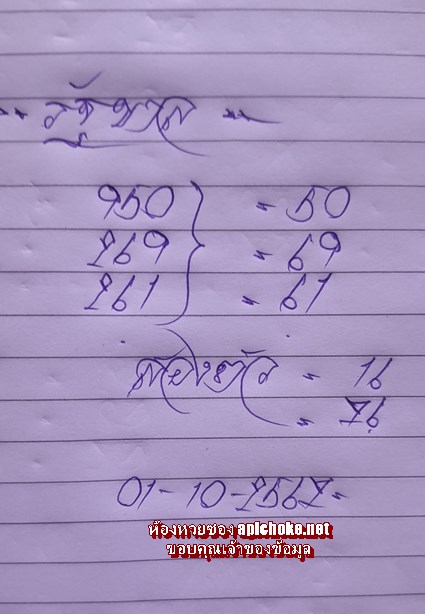 รัฐบาล
950 } = 50
269 = 69
261 = 61
สองตัว = 16
= 76
01-10-2567
ห้องหวยซอง apichoke.net
ขอบคุณเจ้าของข้อมูล